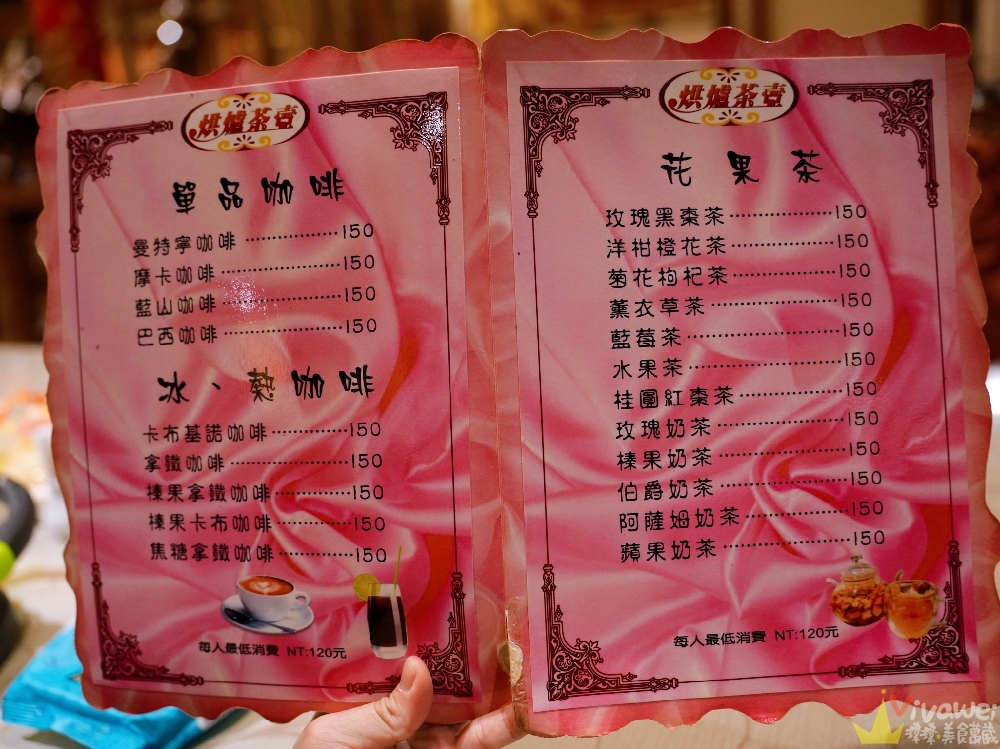 烘爐茶壺
單品咖啡
曼特寧咖啡 150
摩卡咖啡 150
藍山咖啡 150
巴西咖啡 150
冰、熱咖啡
卡布基諾咖啡 150
拿鐵咖啡 150
榛果拿鐵咖啡 150
榛果卡布咖啡 150
焦糖拿鐵咖啡 150
每人最低消費 NT:120元
烘爐茶壺
花果茶
玫瑰黑棗茶 150
洋柑橙花茶 150
菊花枸杞茶 150
薰衣草茶 150
藍莓茶 150
水果茶 150
桂圓紅棗茶 150
玫瑰奶茶 150
榛果奶茶 150
伯爵奶茶 150
阿薩姆奶茶 150
蘋果奶茶 150
每人最低消費 NT:120元
Vivawei